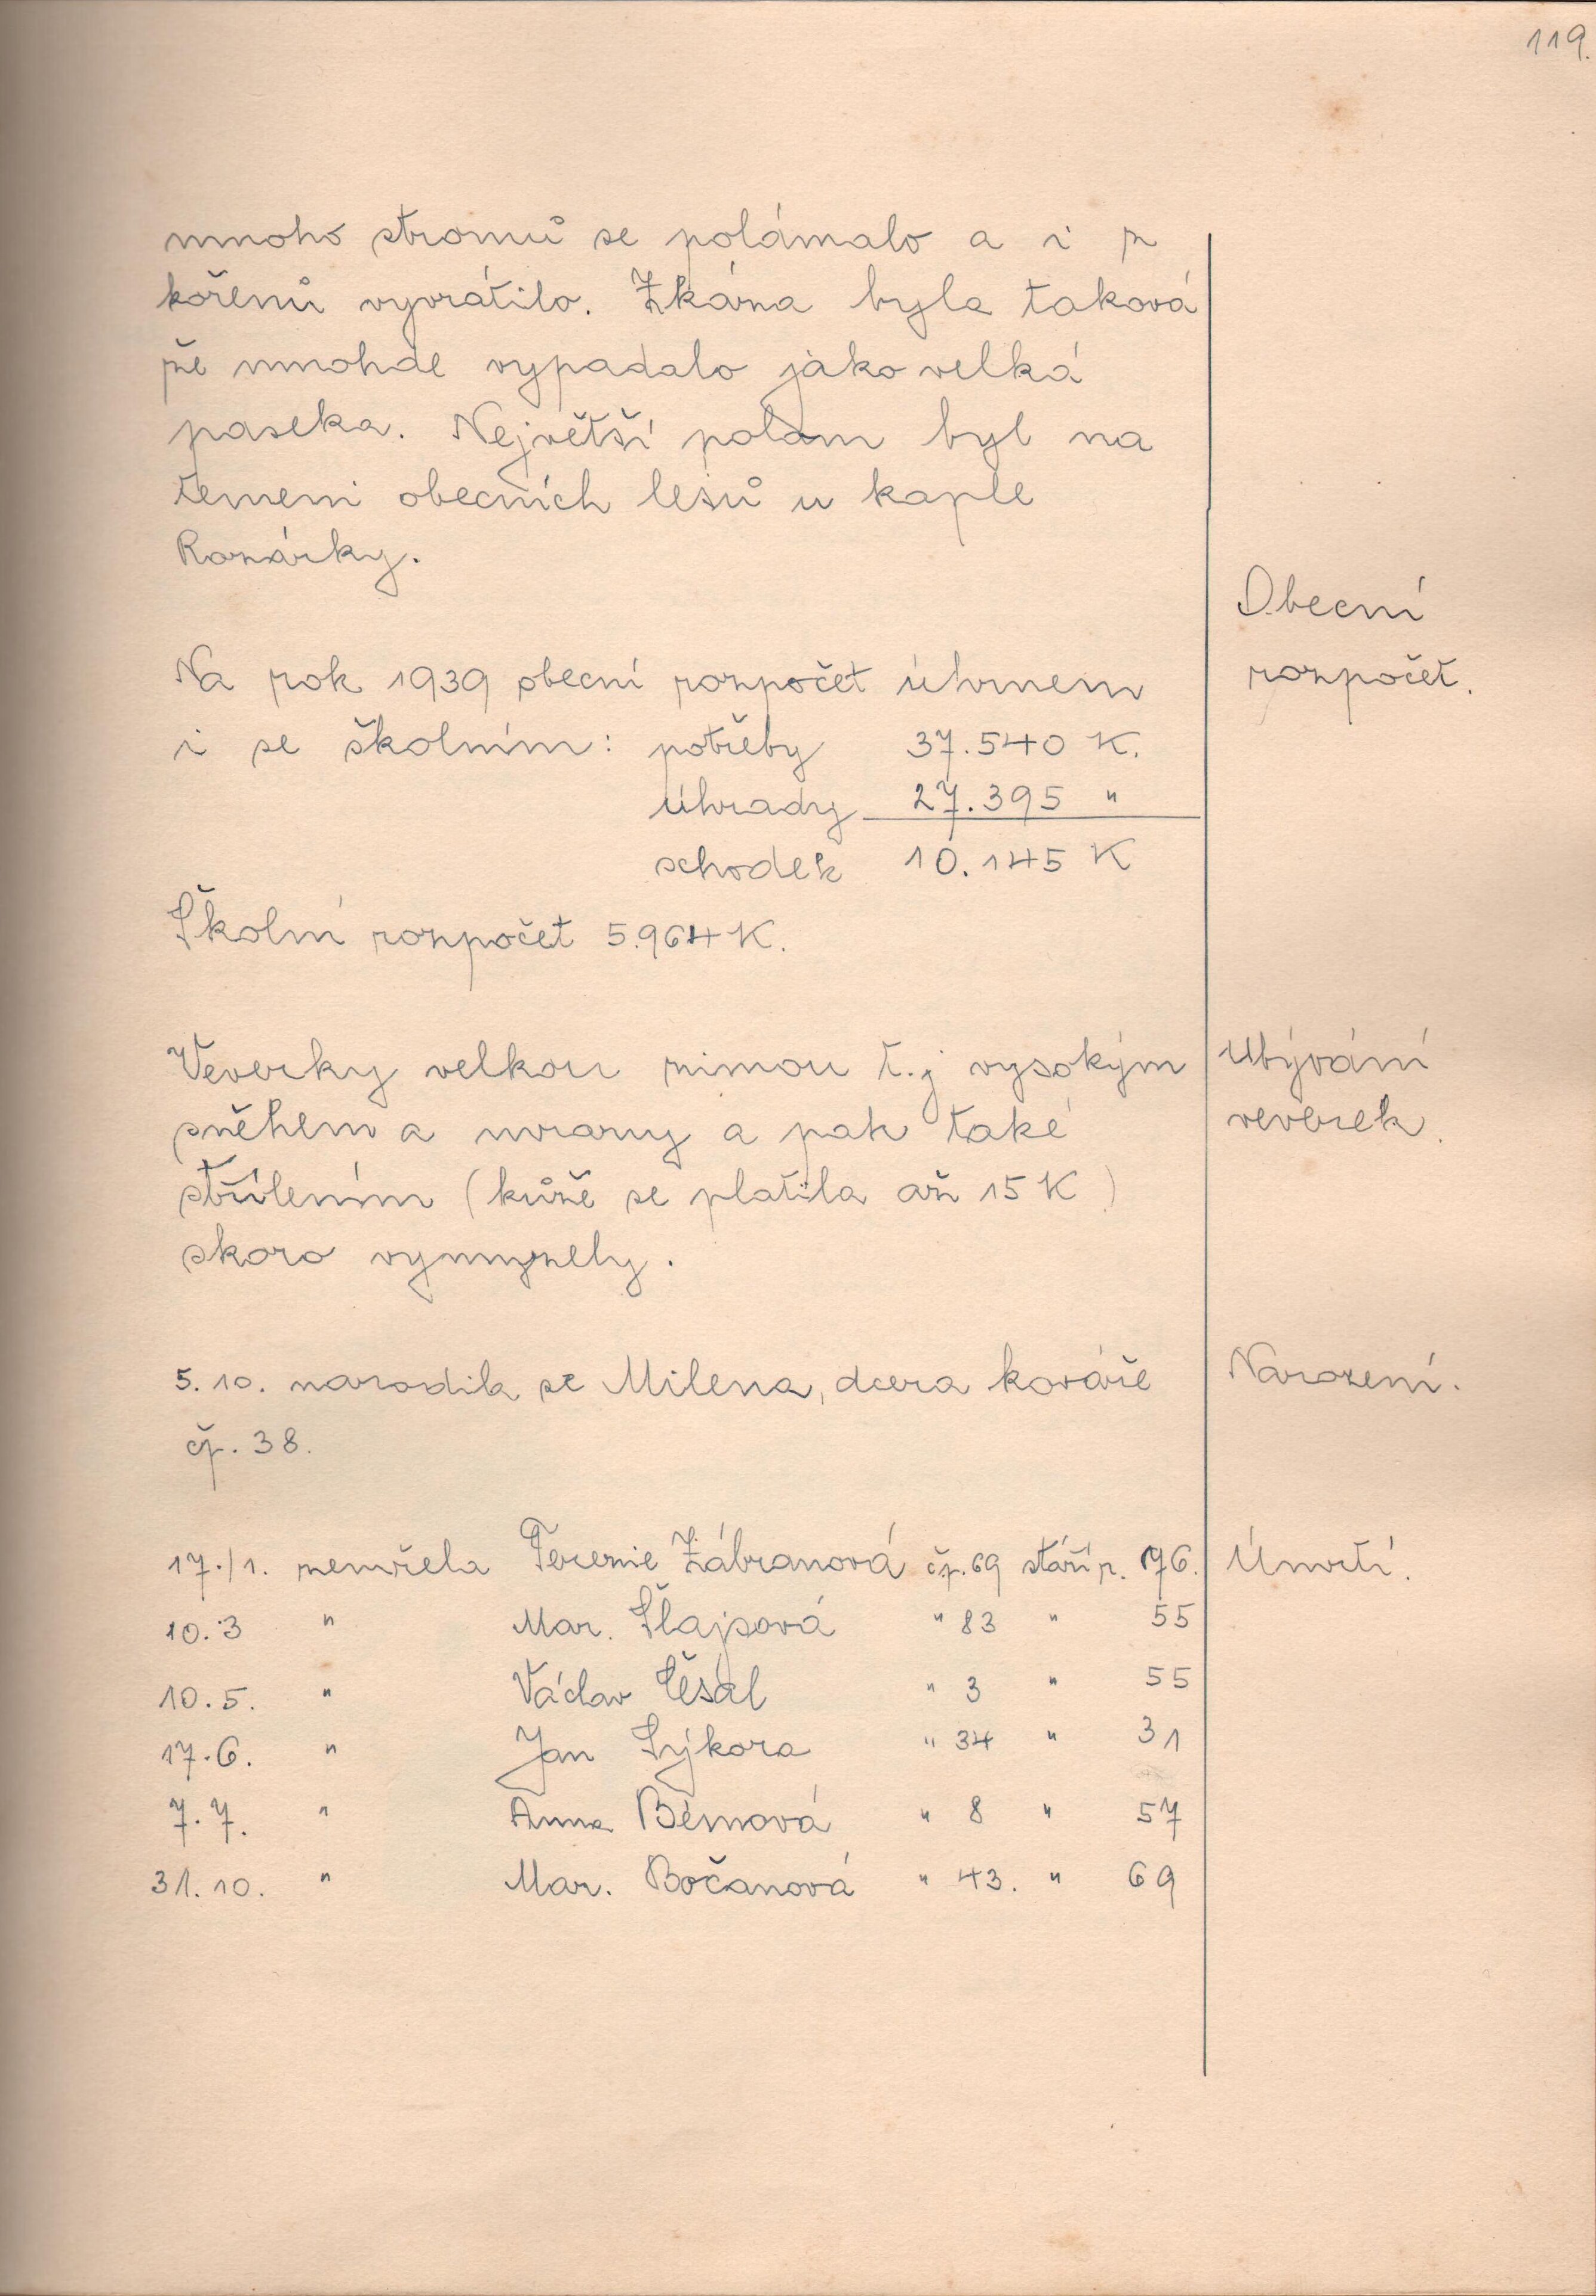 119.
mnoho stromů se polámalo a i z
kořenů vyvrátilo. Zkáza byla taková
že mnohde vypadalo jako velká
paseka. Největší polom byl na
temeni obecních lesů u kaple
Rozárky.
Obecní
rozpočet.
Na rok 1939 obecní rozpočet úhrnem
i se školním: potřeby 37.540 K.
úhrady 27.395 "
schodek 10.145 K
Školní rozpočet 5.964 K.
Veverky velkou zimou t.j vysokým
Ubývání
sněhem a mrazy a pak také
veverek.
střílením (kůže se platila až 15 K)
skoro vymizely.
5. 10. narodila se Milena, dcera kováře
Narození.
čp. 38.
17./1. zemřela Terezie Zábranová čp. 69 stáří r. 76.
Úmrtí.
10. 3 " Mar. Šlajsová " 83 " 55
10. 5. " Václav Česal " 3 " 55
17. 6. " Jan Sýkora " 34 " 31
7. 7. " Anna Bémová " 8 " 57
31. 10. " Mar. Bočanová " 43. " 69